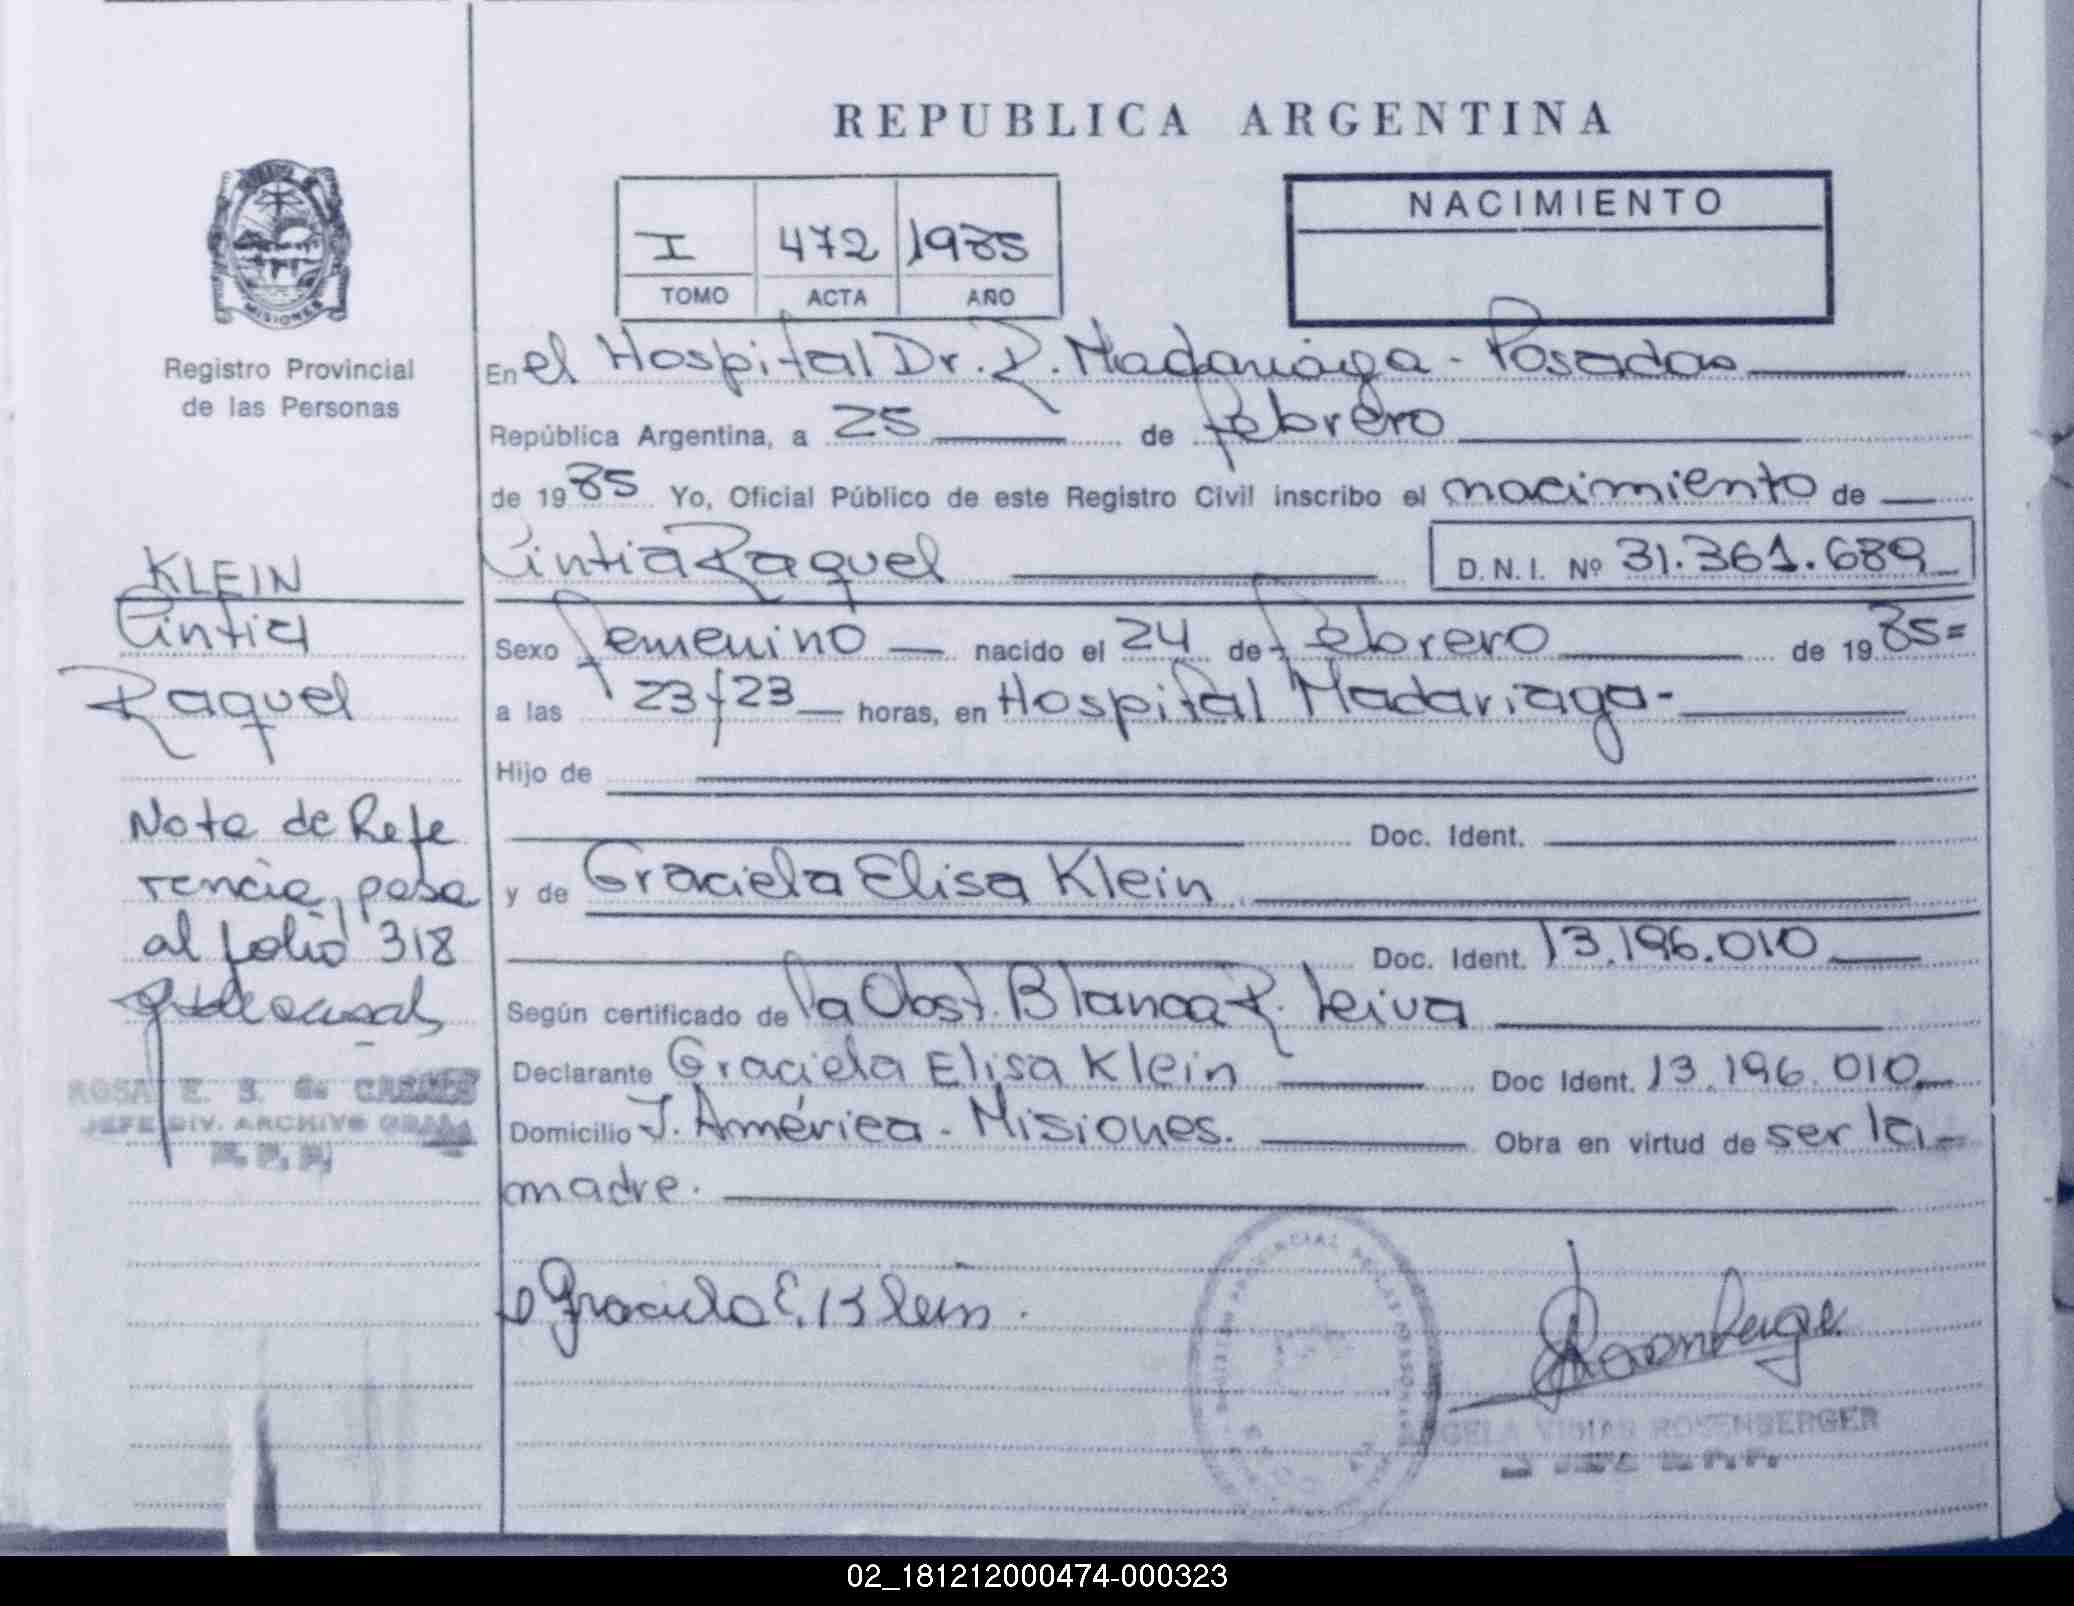 REPUBLICA ARGENTINA
MISIONES
Registro Provincial
de las Personas
I 472 1985
TOMO ACTA AÑO
NACIMIENTO
En el Hospital Dr. R. Madariaga - Posadas
República Argentina, a 25 de febrero
de 1985 Yo, Oficial Público de este Registro Civil inscribo el nacimiento de
Cintia Raquel D.N.I. Nº 31.361.689
Sexo femenino nacido el 24 de febrero de 1985=
a las 23 y 23 horas, en Hospital Madariaga-
Hijo de
Doc. Ident.
y de Graciela Elisa Klein
Doc. Ident. 13.196.010
Según certificado de la Obst. Blanca R. Leiva
Declarante Graciela Elisa Klein Doc Ident. 13.196.010
Domicilio J. América - Misiones. Obra en virtud de ser la
madre.
KLEIN
Cintia
Raquel
Nota de Refe
rencia, pasa
al folio 318
ROSA E. S. de
JEFE DIV. ARCHIVO GRAL
R. P. P.
Graciela E. Klein.
ROSENBERGER
02_181212000474-000323